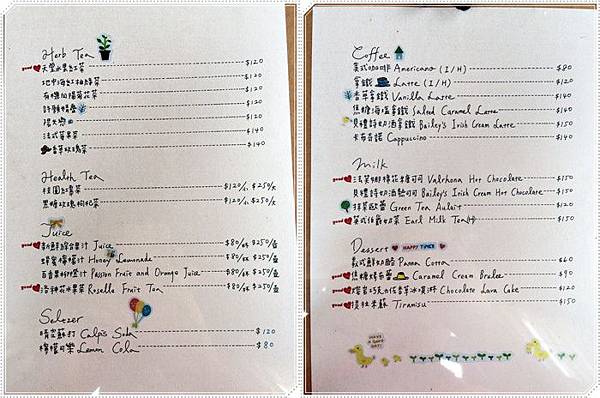 Herb Tea
天堂水果紅茶 $120
地中海紅柚綠茶 $120
有機洋甘菊花茶 $120
$120
$120
法式 茶 $140
香草玫瑰茶 $140
Health Tea
桂圓紅棗茶 $120/小 $250/大
黑糖玫瑰枸杞茶 $120/小 $250/大
Juice
新鮮綜合果汁 Juice $80/杯 $250/壺
蜂蜜檸檬汁 Honey Lemonade $80/杯 $250/壺
百香果柳橙汁 Passion Fruit and Orange Juice $80/杯 $250/壺
洛神花水果茶 Roselle Fruit Tea $80/杯 $250/壺
Seltzer
晴空蘇打 Calpis Soda $120
檸檬可樂 Lemon Cola $80
Coffee
美式咖啡 Americano (I/H) $80
拿鐵 Latte (I/H) $120
香草拿鐵 Vanilla Latte $140
焦糖海鹽拿鐵 Salted Caramel Latte $140
貝禮詩奶酒拿鐵 Bailey's Irish Cream Latte $150
卡布奇諾 Cappuccino $140
Milk
法芙娜棉花糖可可 Valrhona Hot Chocolate $150
貝禮詩奶酒可可 Bailey's Irish Cream Hot Chocolate $150
抹茶歐蕾 Green Tea Aulait $120
英式伯爵奶茶 Earl Milk Tea $150
Dessert HAPPY TIMES
義式鮮奶酪 Panna Cotta $60
焦糖烤布蕾 Caramel Cream Brulee $90
熔岩巧克力佐香草冰淇淋 Chocolate Lava Cake $120
提拉米蘇 Tiramisu $150
HAVE A GOOD DAY!